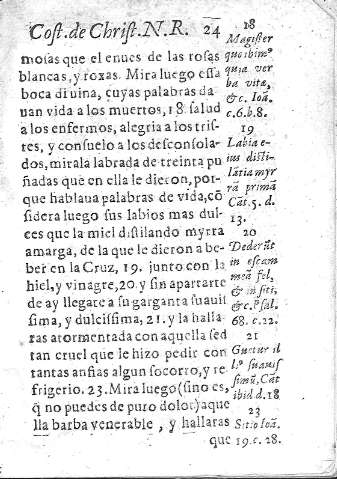 Cost. de Christ. N. R. 24
mosas que el enues de las rosas
blancas, y roxas. Mira luego essa
boca diuina, cuyas palabras da
uan vida a los muertos, 18 salud
a los enfermos, alegria a los tris-
tes, y consuelo a los desconsola-
dos, mirala labrada de treinta pu
ñadas que en ella le dieron, por-
que hablaua palabras de vida, cõ
sidera luego sus labios mas dul-
ces que la miel distilando myrra
amarga, de la que le dieron a be-
ber en la Cruz, 19. junto con la
hiel, y vinagre, 20. y sin apartarte
de ay llegate a su garganta suauis
sima, y dulcissima, 21. y la halla-
ras atormentada con aquella sed
tan cruel que le hizo pedir con
tantas ansias algun socorro, y re
frigerio. 23. Mira luego (sino es,
q̃ no puedes de puro dolor) aque
lla barba venerable, y hallaras
que
18
Magister
quo ibim⁹
quia ver
ba vitæ,
&c. Ioã.
c. 6. b. 8.
19
Labia e-
ius disti-
lãtia myr
rã primã
Cãt. 5. d.
13.
20
Dederũt
in escam
meã fel,
& in siti,
&c. Psal.
68. c. 22.
21
Guttur il
l⁹ suauis
simũ, Cãt
ibid. d. 18
23
Sitio Ioã.
19. c. 28.